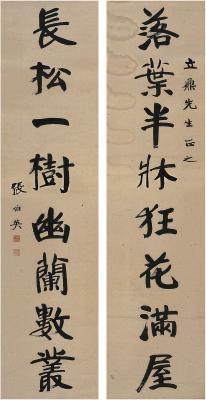 立鼎先生正之
落葉半牀狂花滿屋
長松一樹幽蘭數叢
張伯英